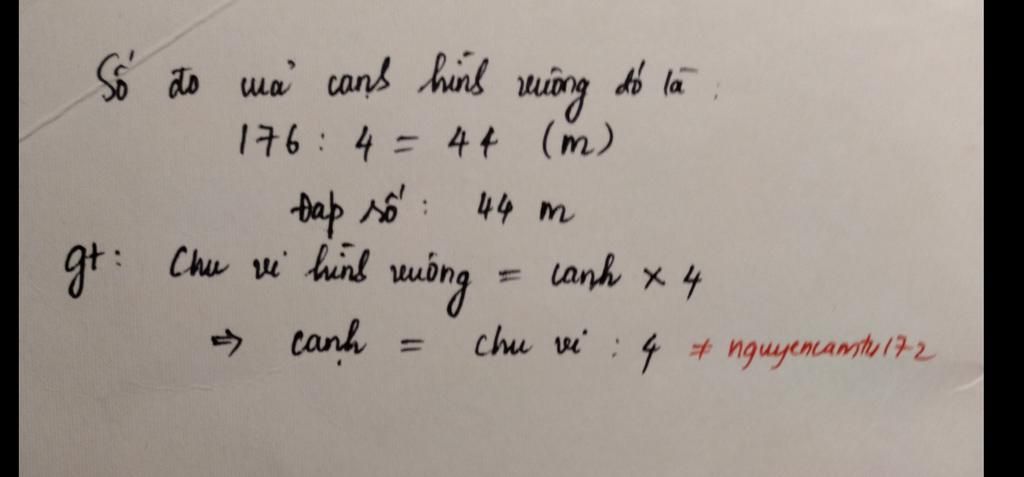 Số đo của cạnh hình vuông đó là :
176 : 4 = 44 (m)
Đáp số : 44 m
gt : Chu vi hình vuông = cạnh × 4
⇒ cạnh = chu vi : 4 # nguyencamtu172